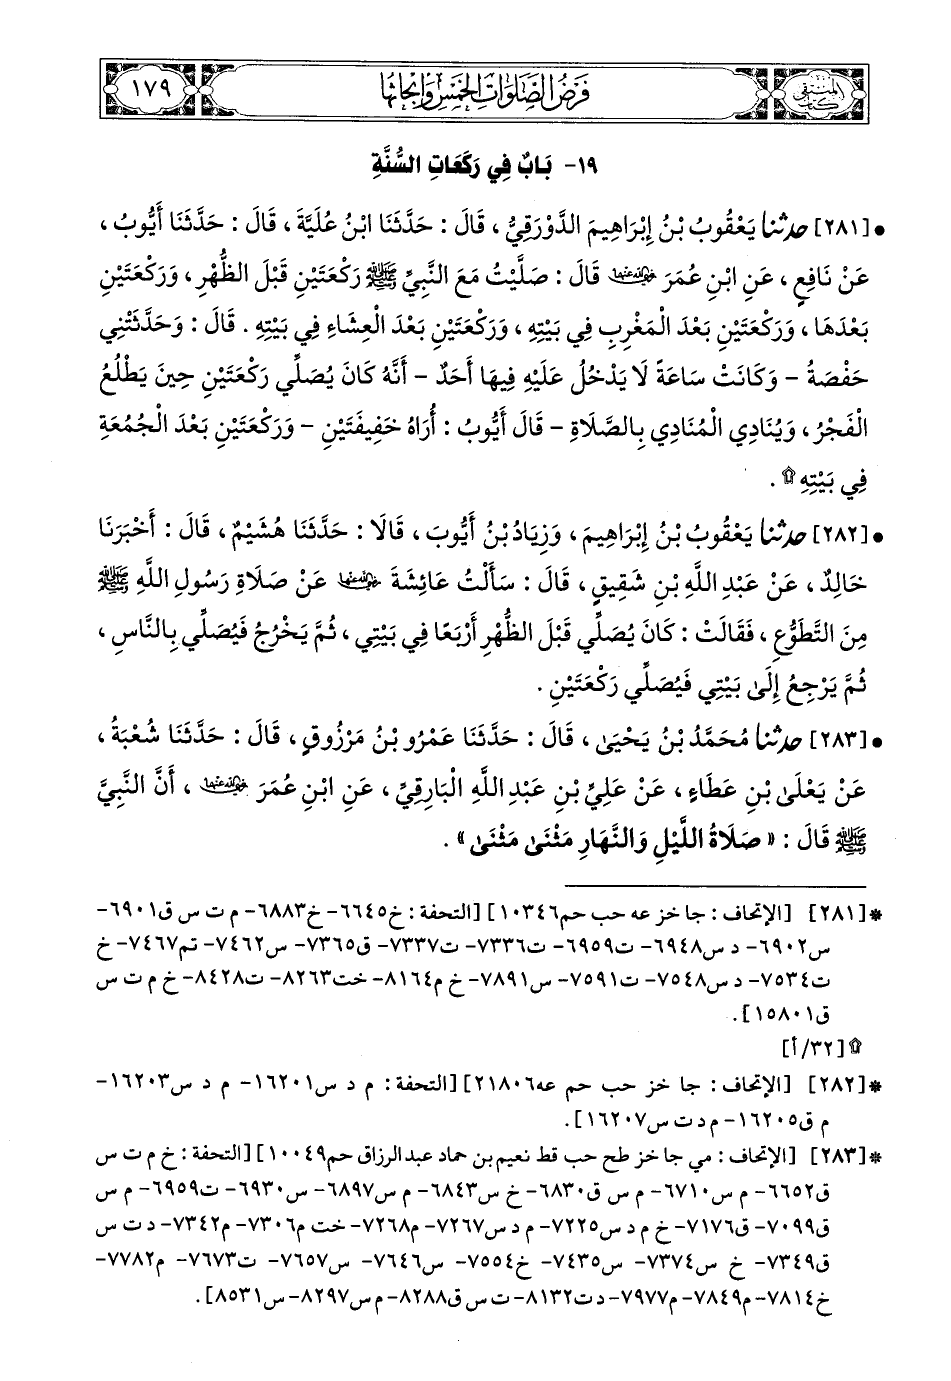 كتاب المنتقى فَرْضُ الصَّلَوَاتِ الخَمْسِ وَأَبْحَاثُهَا ١٧٩
١٩- بَابٌ فِي رَكَعَاتِ السُّنَّةِ
• [٢٨١] حدثنا يَعْقُوبُ بْنُ إِبْرَاهِيمَ الدَّوْرَقِيُّ ، قَالَ : حَدَّثَنَا ابْنُ عُلَيَّةَ ، قَالَ : حَدَّثَنَا أَيُّوبُ ،
عَنْ نَافِعٍ ، عَنِ ابْنِ عُمَرَ رضي الله عنهما قَالَ : صَلَّيْتُ مَعَ النَّبِيِّ ﷺ رَكْعَتَيْنِ قَبْلَ الظُّهْرِ ، وَرَكْعَتَيْنِ
بَعْدَهَا ، وَرَكْعَتَيْنِ بَعْدَ الْمَغْرِبِ فِي بَيْتِهِ ، وَرَكْعَتَيْنِ بَعْدَ الْعِشَاءِ فِي بَيْتِهِ . قَالَ : وَحَدَّثَتْنِي
حَفْصَةُ - وَكَانَتْ سَاعَةً لَا يَدْخُلُ عَلَيْهِ فِيهَا أَحَدٌ - أَنَّهُ كَانَ يُصَلِّي رَكْعَتَيْنِ حِينَ يَطْلُعُ
الْفَجْرُ ، وَيُنَادِي الْمُنَادِي بِالصَّلَاةِ - قَالَ أَيُّوبُ : أُرَاهُ خَفِيفَتَيْنِ - وَرَكْعَتَيْنِ بَعْدَ الْجُمُعَةِ
فِي بَيْتِهِ ۩ .
• [٢٨٢] حدثنا يَعْقُوبُ بْنُ إِبْرَاهِيمَ ، وَزِيَادُ بْنُ أَيُّوبَ ، قَالَا : حَدَّثَنَا هُشَيْمٌ ، قَالَ : أَخْبَرَنَا
خَالِدٌ ، عَنْ عَبْدِ اللَّهِ بْنِ شَقِيقٍ ، قَالَ : سَأَلْتُ عَائِشَةَ رضي الله عنها عَنْ صَلَاةِ رَسُولِ اللَّهِ ﷺ
مِنَ التَّطَوُّعِ ، فَقَالَتْ : كَانَ يُصَلِّي قَبْلَ الظُّهْرِ أَرْبَعًا فِي بَيْتِي ، ثُمَّ يَخْرُجُ فَيُصَلِّي بِالنَّاسِ ،
ثُمَّ يَرْجِعُ إِلَى بَيْتِي فَيُصَلِّي رَكْعَتَيْنِ .
• [٢٨٣] حدثنا مُحَمَّدُ بْنُ يَحْيَى ، قَالَ : حَدَّثَنَا عَمْرُو بْنُ مَرْزُوقٍ ، قَالَ : حَدَّثَنَا شُعْبَةُ ،
عَنْ يَعْلَى بْنِ عَطَاءٍ ، عَنْ عَلِيِّ بْنِ عَبْدِ اللَّهِ الْبَارِقِيِّ ، عَنِ ابْنِ عُمَرَ رضي الله عنهما ، أَنَّ النَّبِيَّ
ﷺ قَالَ : « صَلَاةُ اللَّيْلِ وَالنَّهَارِ مَثْنَى مَثْنَى » .
*[٢٨١] [الإتحاف : جا خز عه حب حم١٠٣٤٦] [التحفة : خ٦٦٤٥- خ٦٨٨٣- م ت س ق٦٩٠١-
س٦٩٠٢- د س٦٩٤٨- ت٦٩٥٩- ت٧٣٣٦- ت٧٣٣٧- ق٧٣٦٥- س٧٤٦٢- تم٧٤٦٧- خ
ت٧٥٣٤- د س٧٥٤٨- ت٧٥٩١- س٧٨٩١- خ م٨١٦٤- خت٨٢٦٣- ت٨٤٢٨- خ م ت س
ق١٥٨٠١].
۩ [٣٢/أ]
*[٢٨٢] [الإتحاف : جا خز حب حم عه٢١٨٠٦] [التحفة : م د س١٦٢٠١- م د س١٦٢٠٣-
م ق١٦٢٠٥- م د ت س١٦٢٠٧].
*[٢٨٣] [الإتحاف : مي جا خز طح حب قط نعيم بن حماد عبد الرزاق حم١٠٠٤٩] [التحفة : خ م ت س
ق٦٦٥٢- م س٦٧١٠- م س ق٦٨٣٠- خ س٦٨٤٣- م س٦٨٩٧- س٦٩٣٠- ت٦٩٥٩- م س
ق٧٠٩٩- ق٧١٧٦- خ م د س٧٢٢٥- م د س٧٢٦٧- م٧٢٦٨- خت م٧٣٠٦- م٧٣٤٢- د ت س
ق٧٣٤٩- خ س٧٣٧٤- س٧٤٣٥- خ٧٥٥٤- س٧٦٤٦- س٧٦٥٧- ت٧٦٧٣- م٧٧٨٢-
خ٧٨١٤- م٧٨٤٩- م٧٩٧٧- د ت٨١٣٢- ت س ق٨٢٨٨- م س٨٢٩٧- س٨٥٣١].